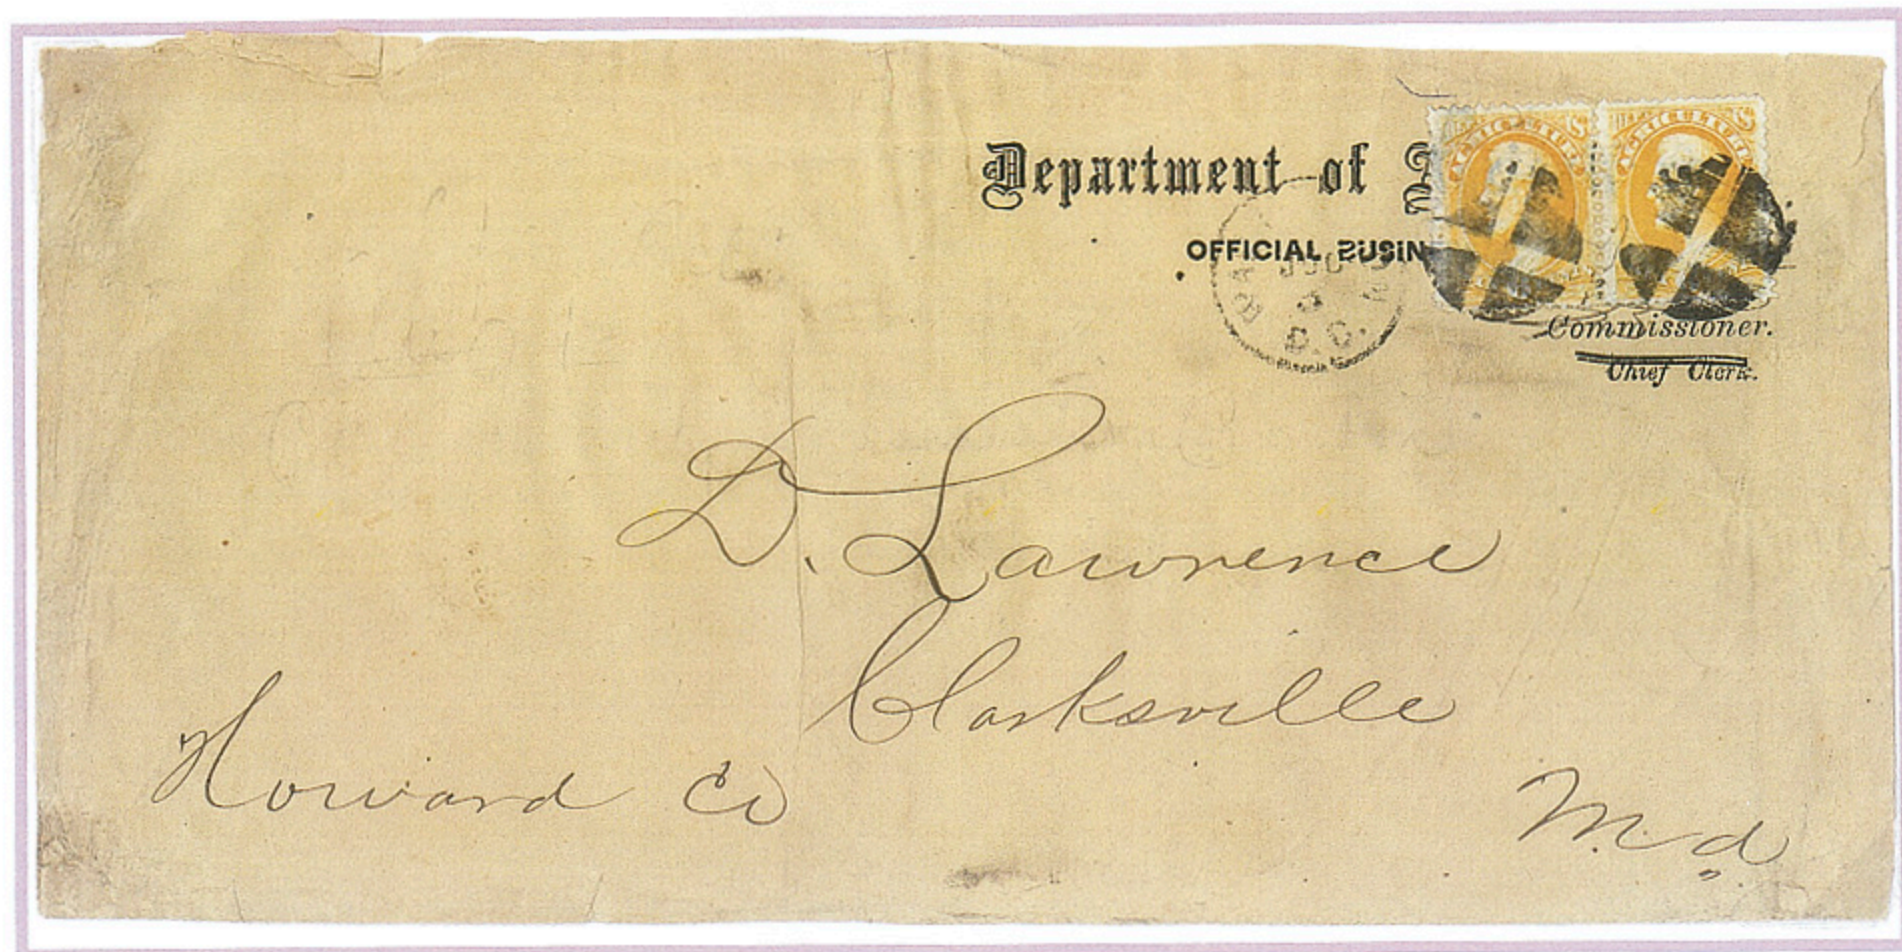 Department of
OFFICIAL BUSIN
AGRICULTURE
AGRICULTURE
D.C.
Commissioner.
Chief Clerk.
D. Lawrence
Clarksville
Howard Co
Md